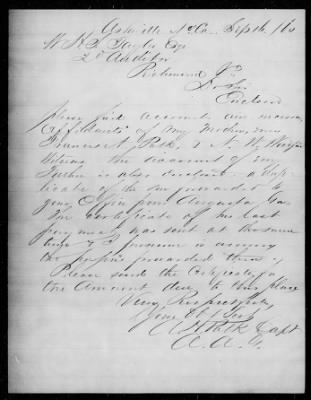 Ashville N. Ca. Sept 16 /63
W. H. S. Taylor Esqr
2d Auditor
Richmond Va
Dr Sir
Enclosed
please find account and
affidavits of my Mother, Mrs
Polk, & N. W.
The account of my
is also enclosed. a dup-
licate of the one forwarded to
your Office from Augusta Ga.
The certificate of his last
payment was sent at the same
time & I presume is among
the papers forwarded then.
Please send the Certificate for
the Amount due to this place
Very Respectfully
Your Obt Servt
Polk Capt
A. A. G.